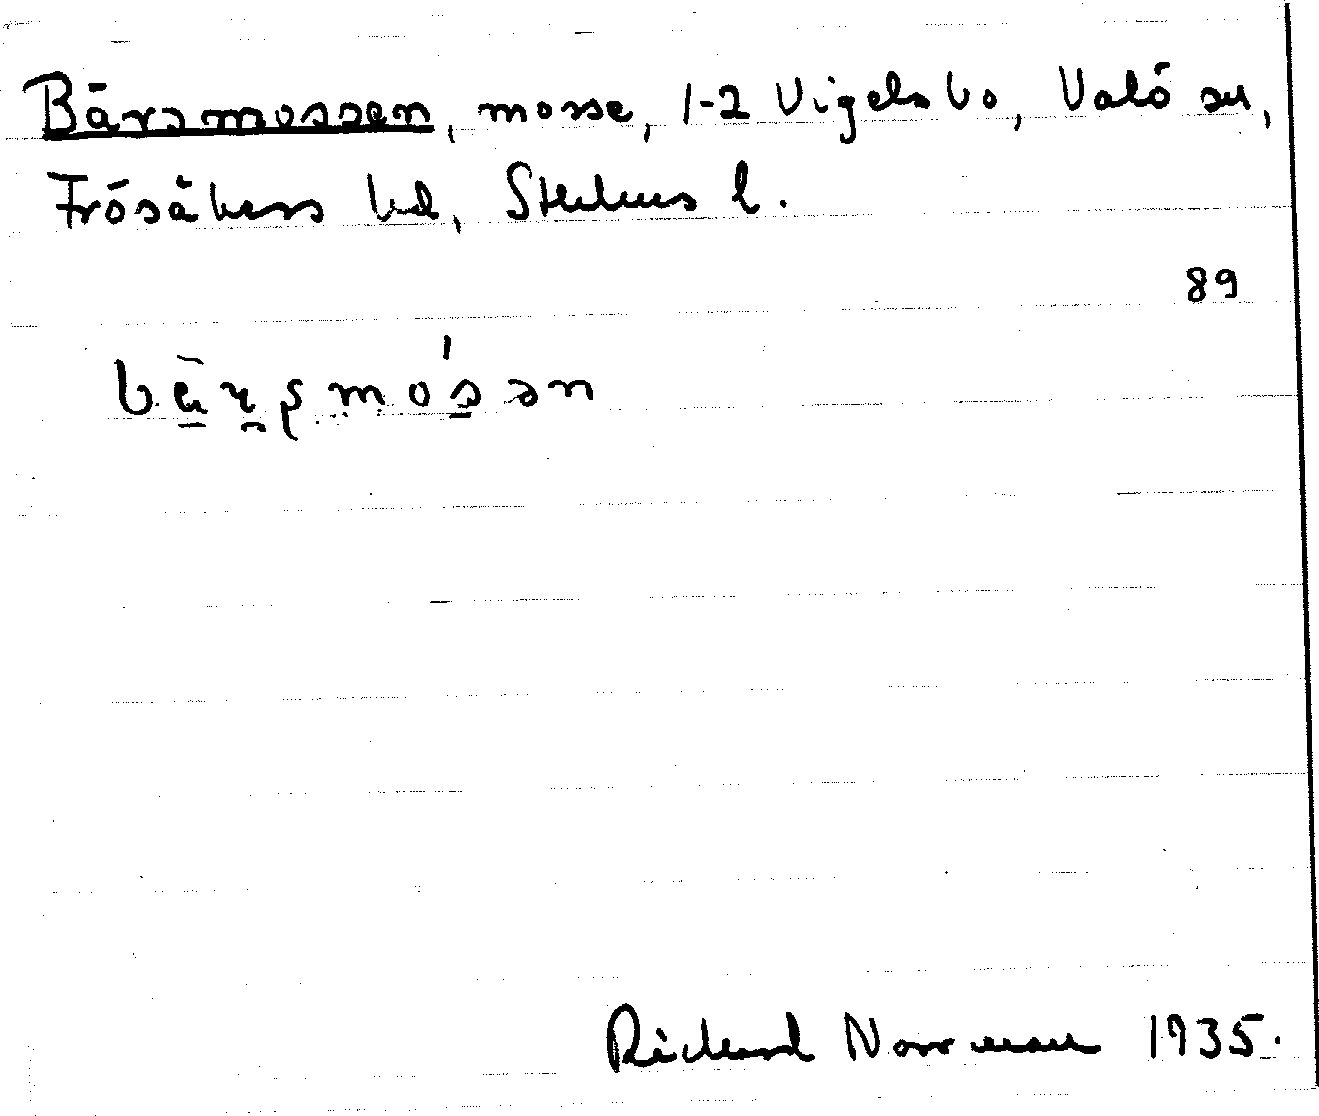 Bärsmossen, mosse, 1-2 Vigelsbo, Valö sn,
Frösåkers hd, Sthlms l.
89
Richard Norrman 1935.